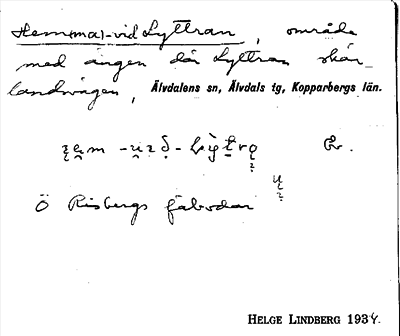 Hem(ma)-vid Lyttran, område
med ängen där Lyttran skär
landvägen, Älvdalens sn, Älvdals tg, Kopparbergs län.
Ö Risbergs fäbodar
HELGE LINDBERG 1934.